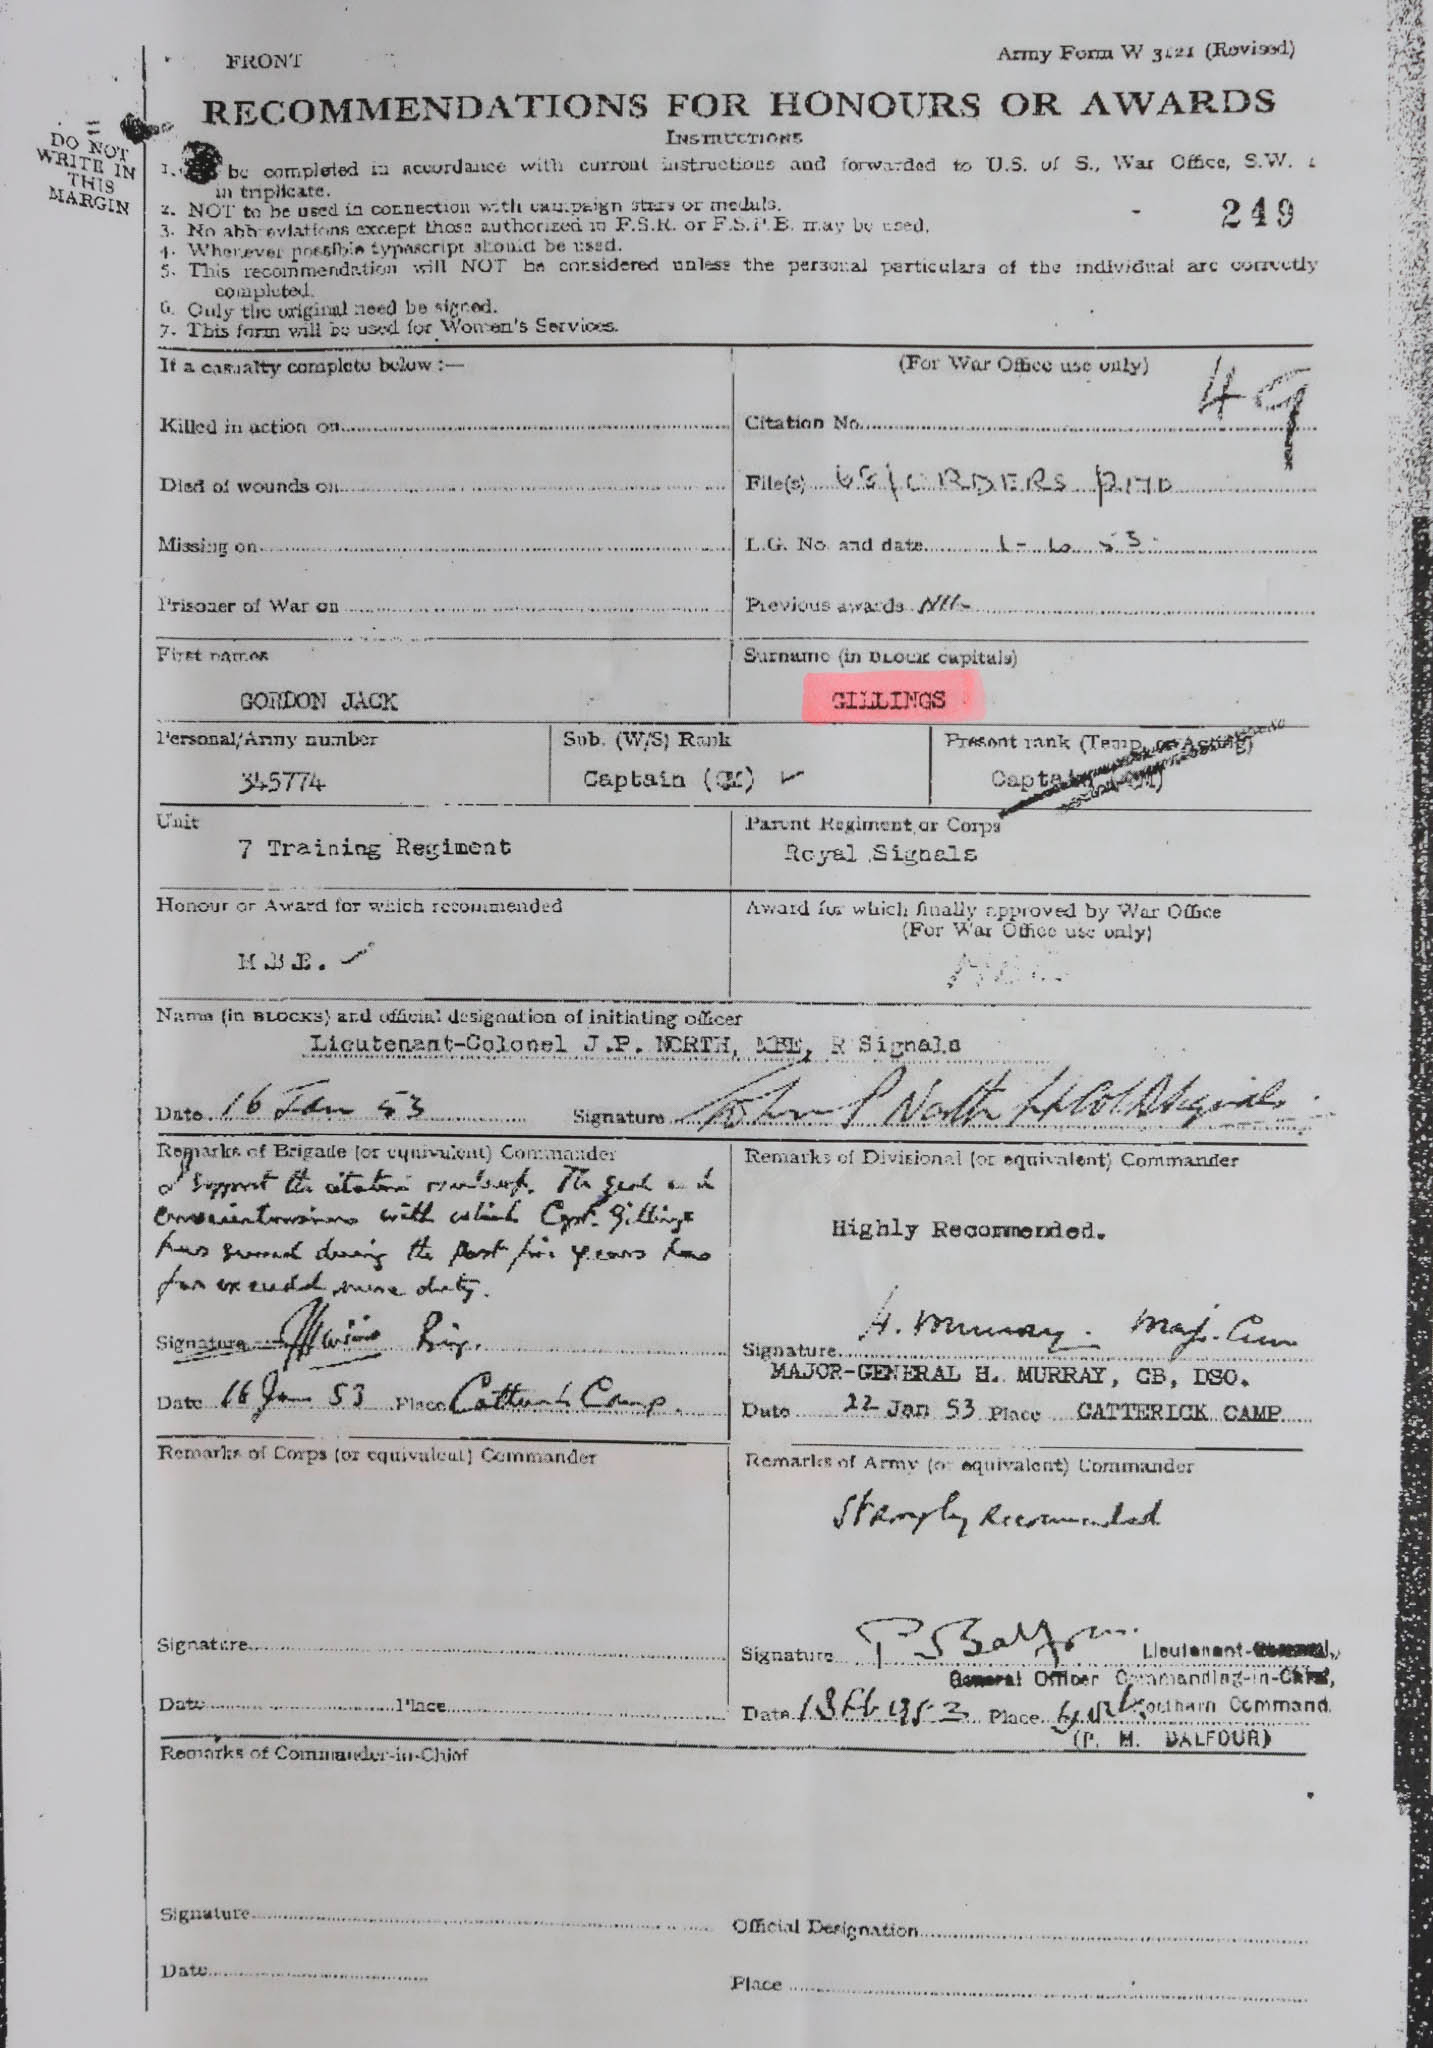 FRONT
Army Form W 3121 (Revised)
RECOMMENDATIONS FOR HONOURS OR AWARDS
INSTRUCTIONS
DO NOT
WRITE IN
THIS
MARGIN
1. be completed in accordance with current instructions and forwarded to U.S. of S., War Office, S.W. 1
in triplicate.
2. NOT to be used in connection with campaign stars or medals.
249
3. No abbreviations except those authorized in F.S.R. or F.S.P.B. may be used.
4. Wherever possible typescript should be used.
5. This recommendation will NOT be considered unless the personal particulars of the individual are correctly
completed.
6. Only the original need be signed.
7. This form will be used for Women's Services.
If a casualty complete below :—
(For War Office use only)
49
Killed in action on
Citation No.
Died of wounds on
File(s) 68/ORDERS/2170
Missing on
L.G. No. and date 1-6-53.
Prisoner of War on
Previous awards Nil-
First names
Surname (in BLOCK capitals)
GORDON JACK
GILLINGS
Personal/Army number
Sub. (W/S) Rank
Present rank (Temp. or Acting)
345774
Captain (QM) ✓
Captain (QM)
Unit
Parent Regiment or Corps
7 Training Regiment
Royal Signals
Honour or Award for which recommended
Award for which finally approved by War Office
(For War Office use only)
M.B.E. ✓
Name (in BLOCKS) and official designation of initiating officer
Lieutenant-Colonel J.P. NORTH, MBE, R Signals
Date 16 Jan 53 Signature John P North Lt Col R Signals
Remarks of Brigade (or equivalent) Commander
Remarks of Divisional (or equivalent) Commander
I support the citation overleaf. The zeal and
conscientiousness with which Capt. Gillings
has served during the past five years has
far exceeded mere duty.
Highly Recommended.
Signature Brig.
H. Murray. Maj. Gen
Signature
MAJOR-GENERAL H. MURRAY, CB, DSO.
Date 16 Jan 53 Place Catterick Camp.
Date 22 Jan 53 Place CATTERICK CAMP
Remarks of Corps (or equivalent) Commander
Remarks of Army (or equivalent) Commander
Strongly Recommended
Signature
Signature P Balfour Lieutenant-General,
General Officer Commanding-in-Chief,
Date Place
Date 13 Feb 1953 Place York Northern Command.
(P. M. BALFOUR)
Remarks of Commander-in-Chief
Signature
Official Designation
Date
Place